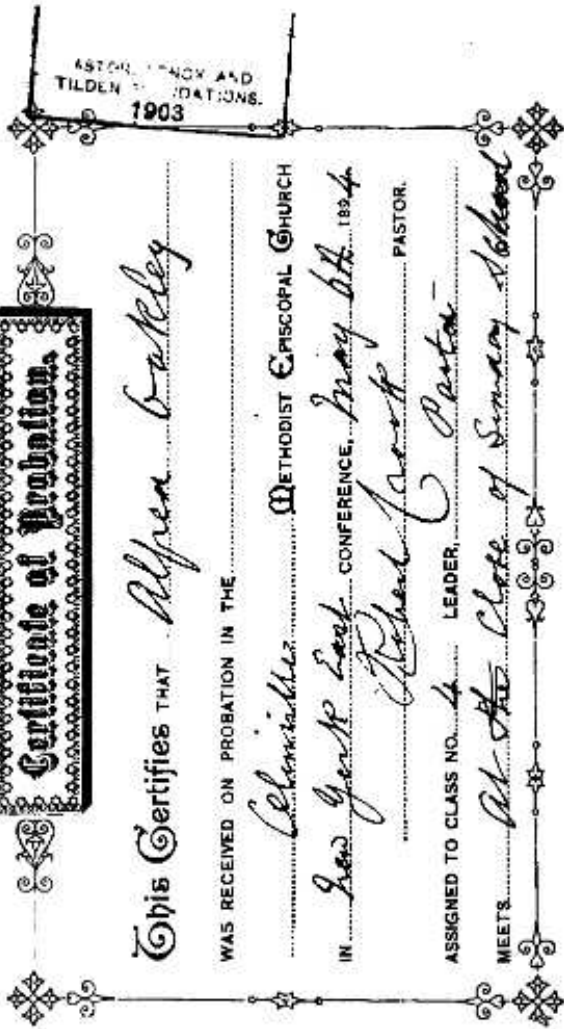 ASTOR, LENOX AND
TILDEN FOUNDATIONS.
1903
Certificate of Probation.
This Certifies THAT Oakley
WAS RECEIVED ON PROBATION IN THE
METHODIST EPISCOPAL CHURCH
IN New York East CONFERENCE, May 6th 1894
Robert PASTOR.
ASSIGNED TO CLASS NO. 4 LEADER, Pastor
MEETS At the Close of Sunday School